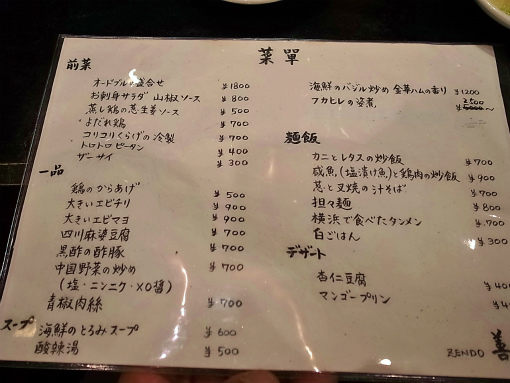 菜單
前菜
オードブル盛合せ ¥1800
お刺身サラダ 山椒ソース ¥800
蒸し鶏の葱生姜ソース ¥500
・よだれ鶏 ¥700
・コリコリくらげの冷製 ¥700
・トロトロピータン ¥400
ザーサイ ¥300
一品
鶏のからあげ ¥500
大きいエビチリ ¥900
大きいエビマヨ ¥900
四川麻婆豆腐 ¥700
黒酢の酢豚 ¥700
中国野菜の炒め ¥700
(塩・ニンニク・XO醤)
青椒肉絲 ¥700
スープ 海鮮のとろみスープ ¥600
酸辣湯 ¥500
海鮮のバジル炒め 金華ハムの香り ¥1200
フカヒレの姿煮 ~
麺飯
カニとレタスの炒飯 ¥700
咸魚(塩漬け魚)と鶏肉の炒飯 ¥900
葱と叉焼の汁そば ¥700
担々麺 ¥800
横浜で食べたタンメン ¥700
白ごはん ¥300
デザート
杏仁豆腐
マンゴープリン
ZENDO 善